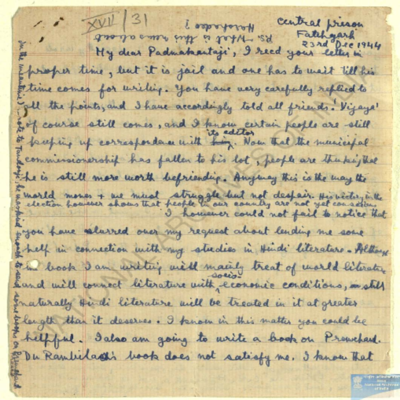 XVII / 31
Central Prison
Fatehgarh
23rd Dec 1944
My dear Padmakantaji, I recd your letter in
proper time, but it is jail and one has to wait till his
time comes for writing. You have very carefully replied to
all the points, and I have accordingly told all friends. 'Vijaya'
of course still comes, and I know certain people are still
keeping up correspondence with its editor. Now that the municipal
commissionership has fallen to his lot, people are thinking that
he is still more worth befriending. Anyway this is the way the
world moves & we must struggle but not despair. His victory in the
election however shows that people of our country are not yet
I however could not fail to notice that
you have slurred over my request about lending me some
help in connection with my studies in Hindi literature.
book I am writing will mainly treat of world literature
and will connect literature with socio-economic conditions, still
naturally Hindi literature will be treated in it at greater
length than it deserves. I know in this matter you could be
helpful. I also am going to write a book on Premchand.
Dr. Rambilas's book does not satisfy me. I know that